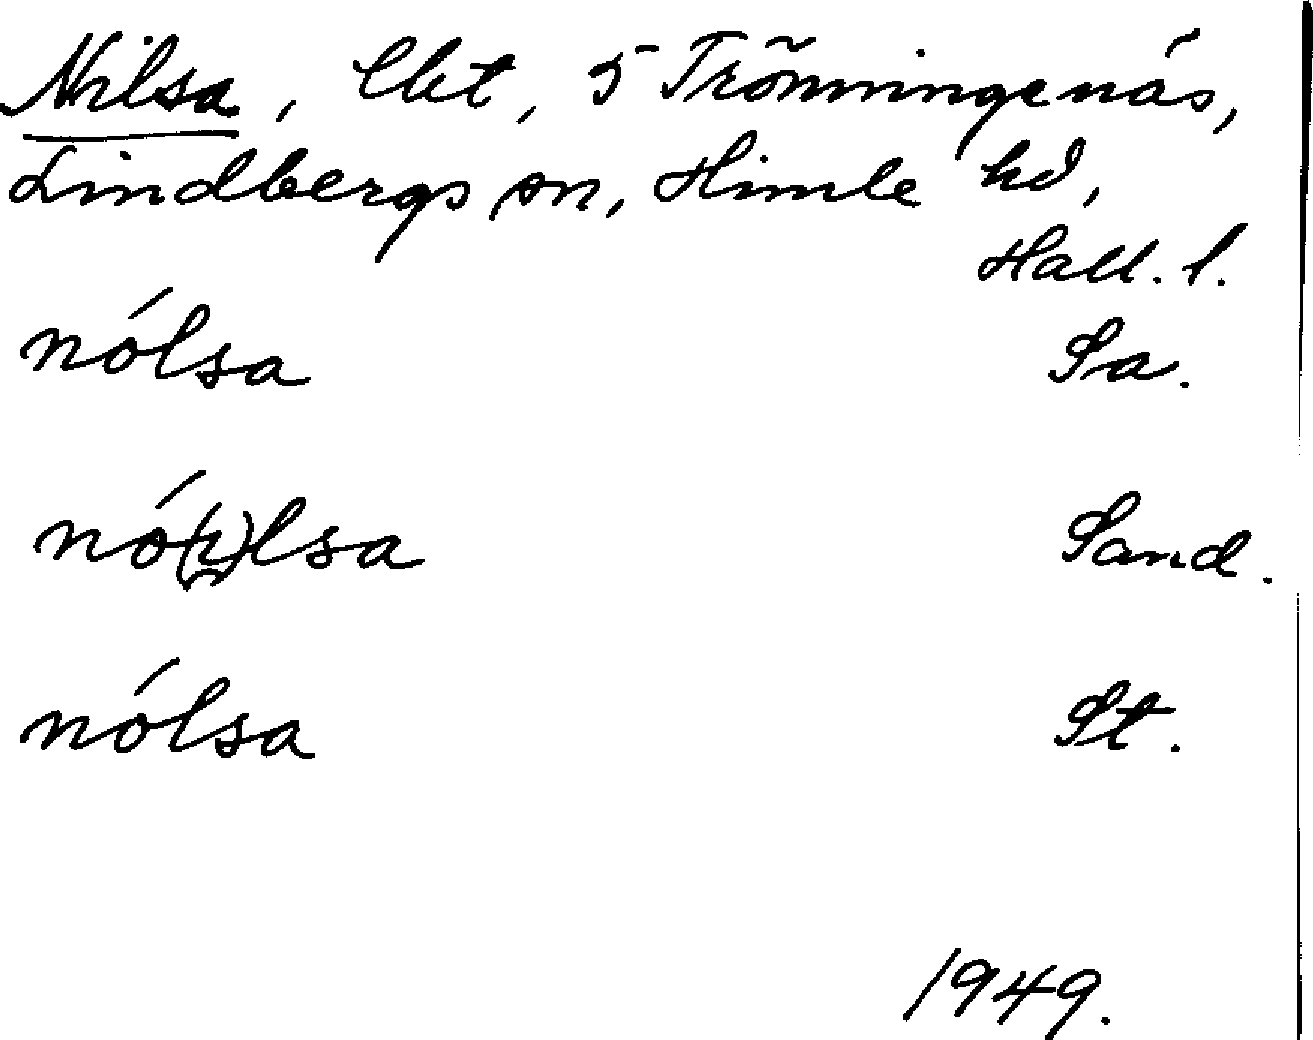 Nilsa, lht, 5 Trönningenäs,
Lindbergs sn, Himle hd,
Hall. l.
nólsa Sa.
nó(r)lsa Sand.
nólsa St.
1949.